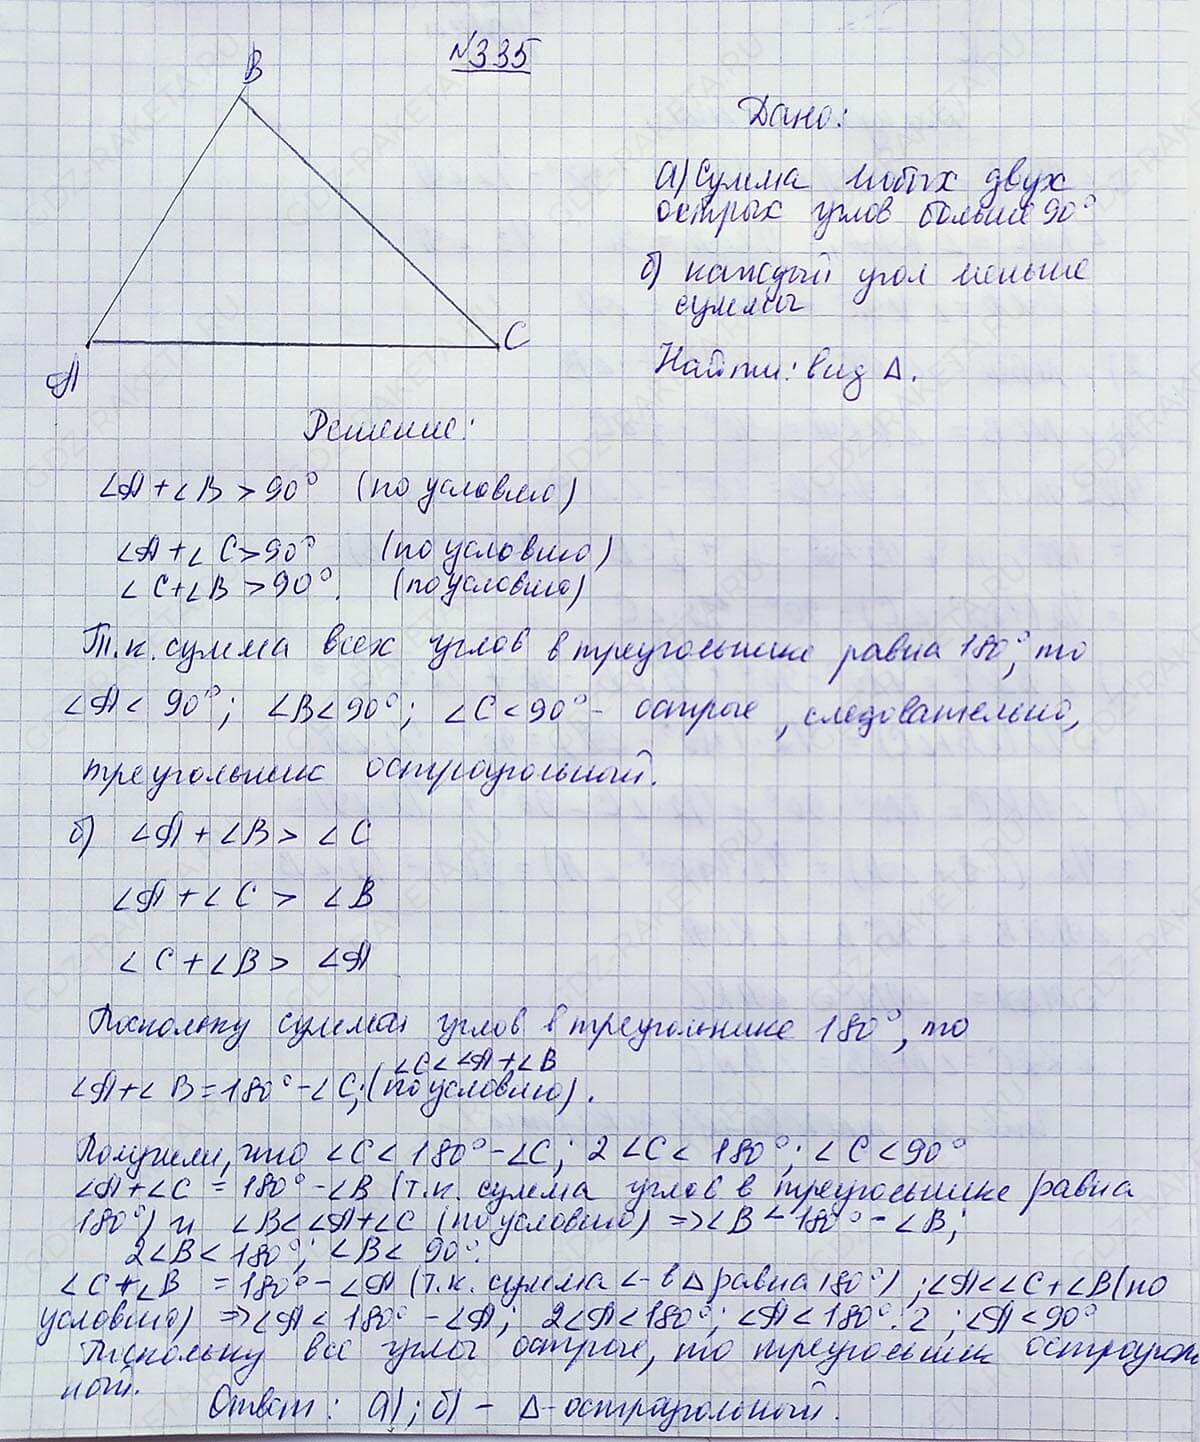 №335
В
А
С
Дано:
а) Сумма любых двух
острых углов больше 90°
б) каждый угол меньше
суммы
Найти: вид Δ.
Решение:
∠А+∠В>90° (по условию)
∠А+∠С>90° (по условию)
∠С+∠В>90°. (по условию)
Т.к. сумма всех углов в треугольнике равна 180°, то
∠А<90°; ∠В<90°; ∠С<90° - острые, следовательно,
треугольник остроугольный.
б) ∠А+∠В>∠С
∠А+∠С>∠В
∠С+∠В>∠А
Поскольку сумма углов в треугольнике 180°, то
∠С<∠А+∠В
∠А+∠В=180°-∠С; (по условию).
Получили, что ∠С<180°-∠С; 2∠С<180°; ∠С<90°
∠А+∠С=180°-∠В (т.к. сумма углов в треугольнике равна
180°) и ∠В<∠А+∠С (по условию) =>∠В<180°-∠В;
2∠В<180°; ∠В<90°.
∠С+∠В=180°-∠А (т.к. сумма ∠-в Δ равна 180°); ∠А<∠С+∠В (по
условию) =>∠А<180°-∠А; 2∠А<180°; ∠А<180°:2; ∠А<90°
Поскольку все углы острые, то треугольник остроуголь
ный.
Ответ: а); б) - Δ-остроугольный.